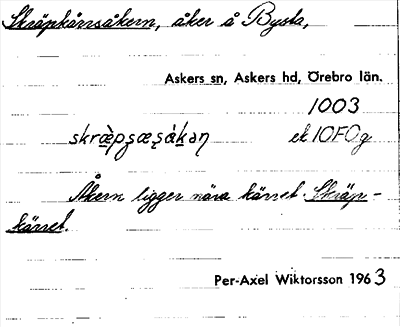 Skräpkärrsåkern, åker å Bysta,
Askers sn, Askers hd, Örebro län.
1003
skræ̀pʂæʂå̀kəɳ ek 10F0g
Åkern ligger nära kärret Skräp-
kärret.
Per-Axel Wiktorsson 1963